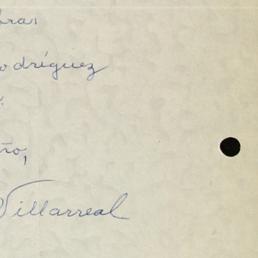 bra:
odríguez
ño,
Villarreal